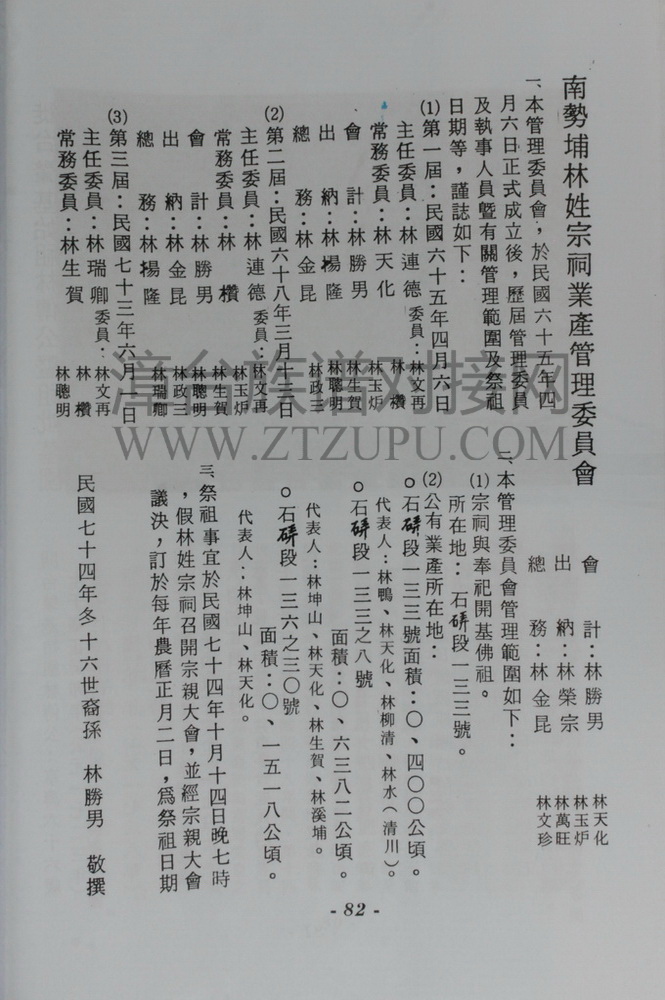 南勢埔林姓宗祠業產管理委員會
一、本管理委員會，於民國六十五年四
月六日正式成立後，歷屆管理委員
及執事人員暨有關管理範圍及祭祖
日期等，謹誌如下：
(1)第一屆：民國六十五年四月六日
主任委員：林連德 委員：林文再
林欑
常務委員：林天化 林玉炉
會計：林勝男 林生賀
出納：林楊隆 林聰明
總務：林金昆 林政三
(2)第二屆：民國六十八年三月十三日
主任委員：林連德 委員：林文再
林玉炉
常務委員：林欑 林生賀
會計：林勝男 林聰明
出納：林金昆 林政三
總務：林楊隆 林瑞卿
(3)第三屆：民國七十三年六月一日
主任委員：林瑞卿 委員：林文再
林欑
常務委員：林生賀 林聰明
會計：林勝男 林天化
林玉炉
出納：林榮宗 林萬旺
總務：林金昆 林文珍
二、本管理委員會管理範圍如下：
(1)宗祠與奉祀開基佛祖。
所在地：石硦段一三三號。
(2)公有業產所在地：
○石硦段一三三號面積：０、四００公頃。
代表人：林鴨、林天化、林柳清、林水（清川）。
○石硦段一三三之八號
面積：０、六三八二公頃。
代表人：林坤山、林天化、林生賀、林溪埔。
○石硦段一三六之三０號
面積：０、一五一八公頃。
代表人：林坤山、林天化。
三、祭祖事宜於民國七十四年十月十四日晚七時
，假林姓宗祠召開宗親大會，並經宗親大會
議決，訂於每年農曆正月二日，爲祭祖日期
民國七十四年冬十六世裔孫 林勝男 敬撰
漳台族谱对接网
WWW.ZTZUPU.COM
- 82 -